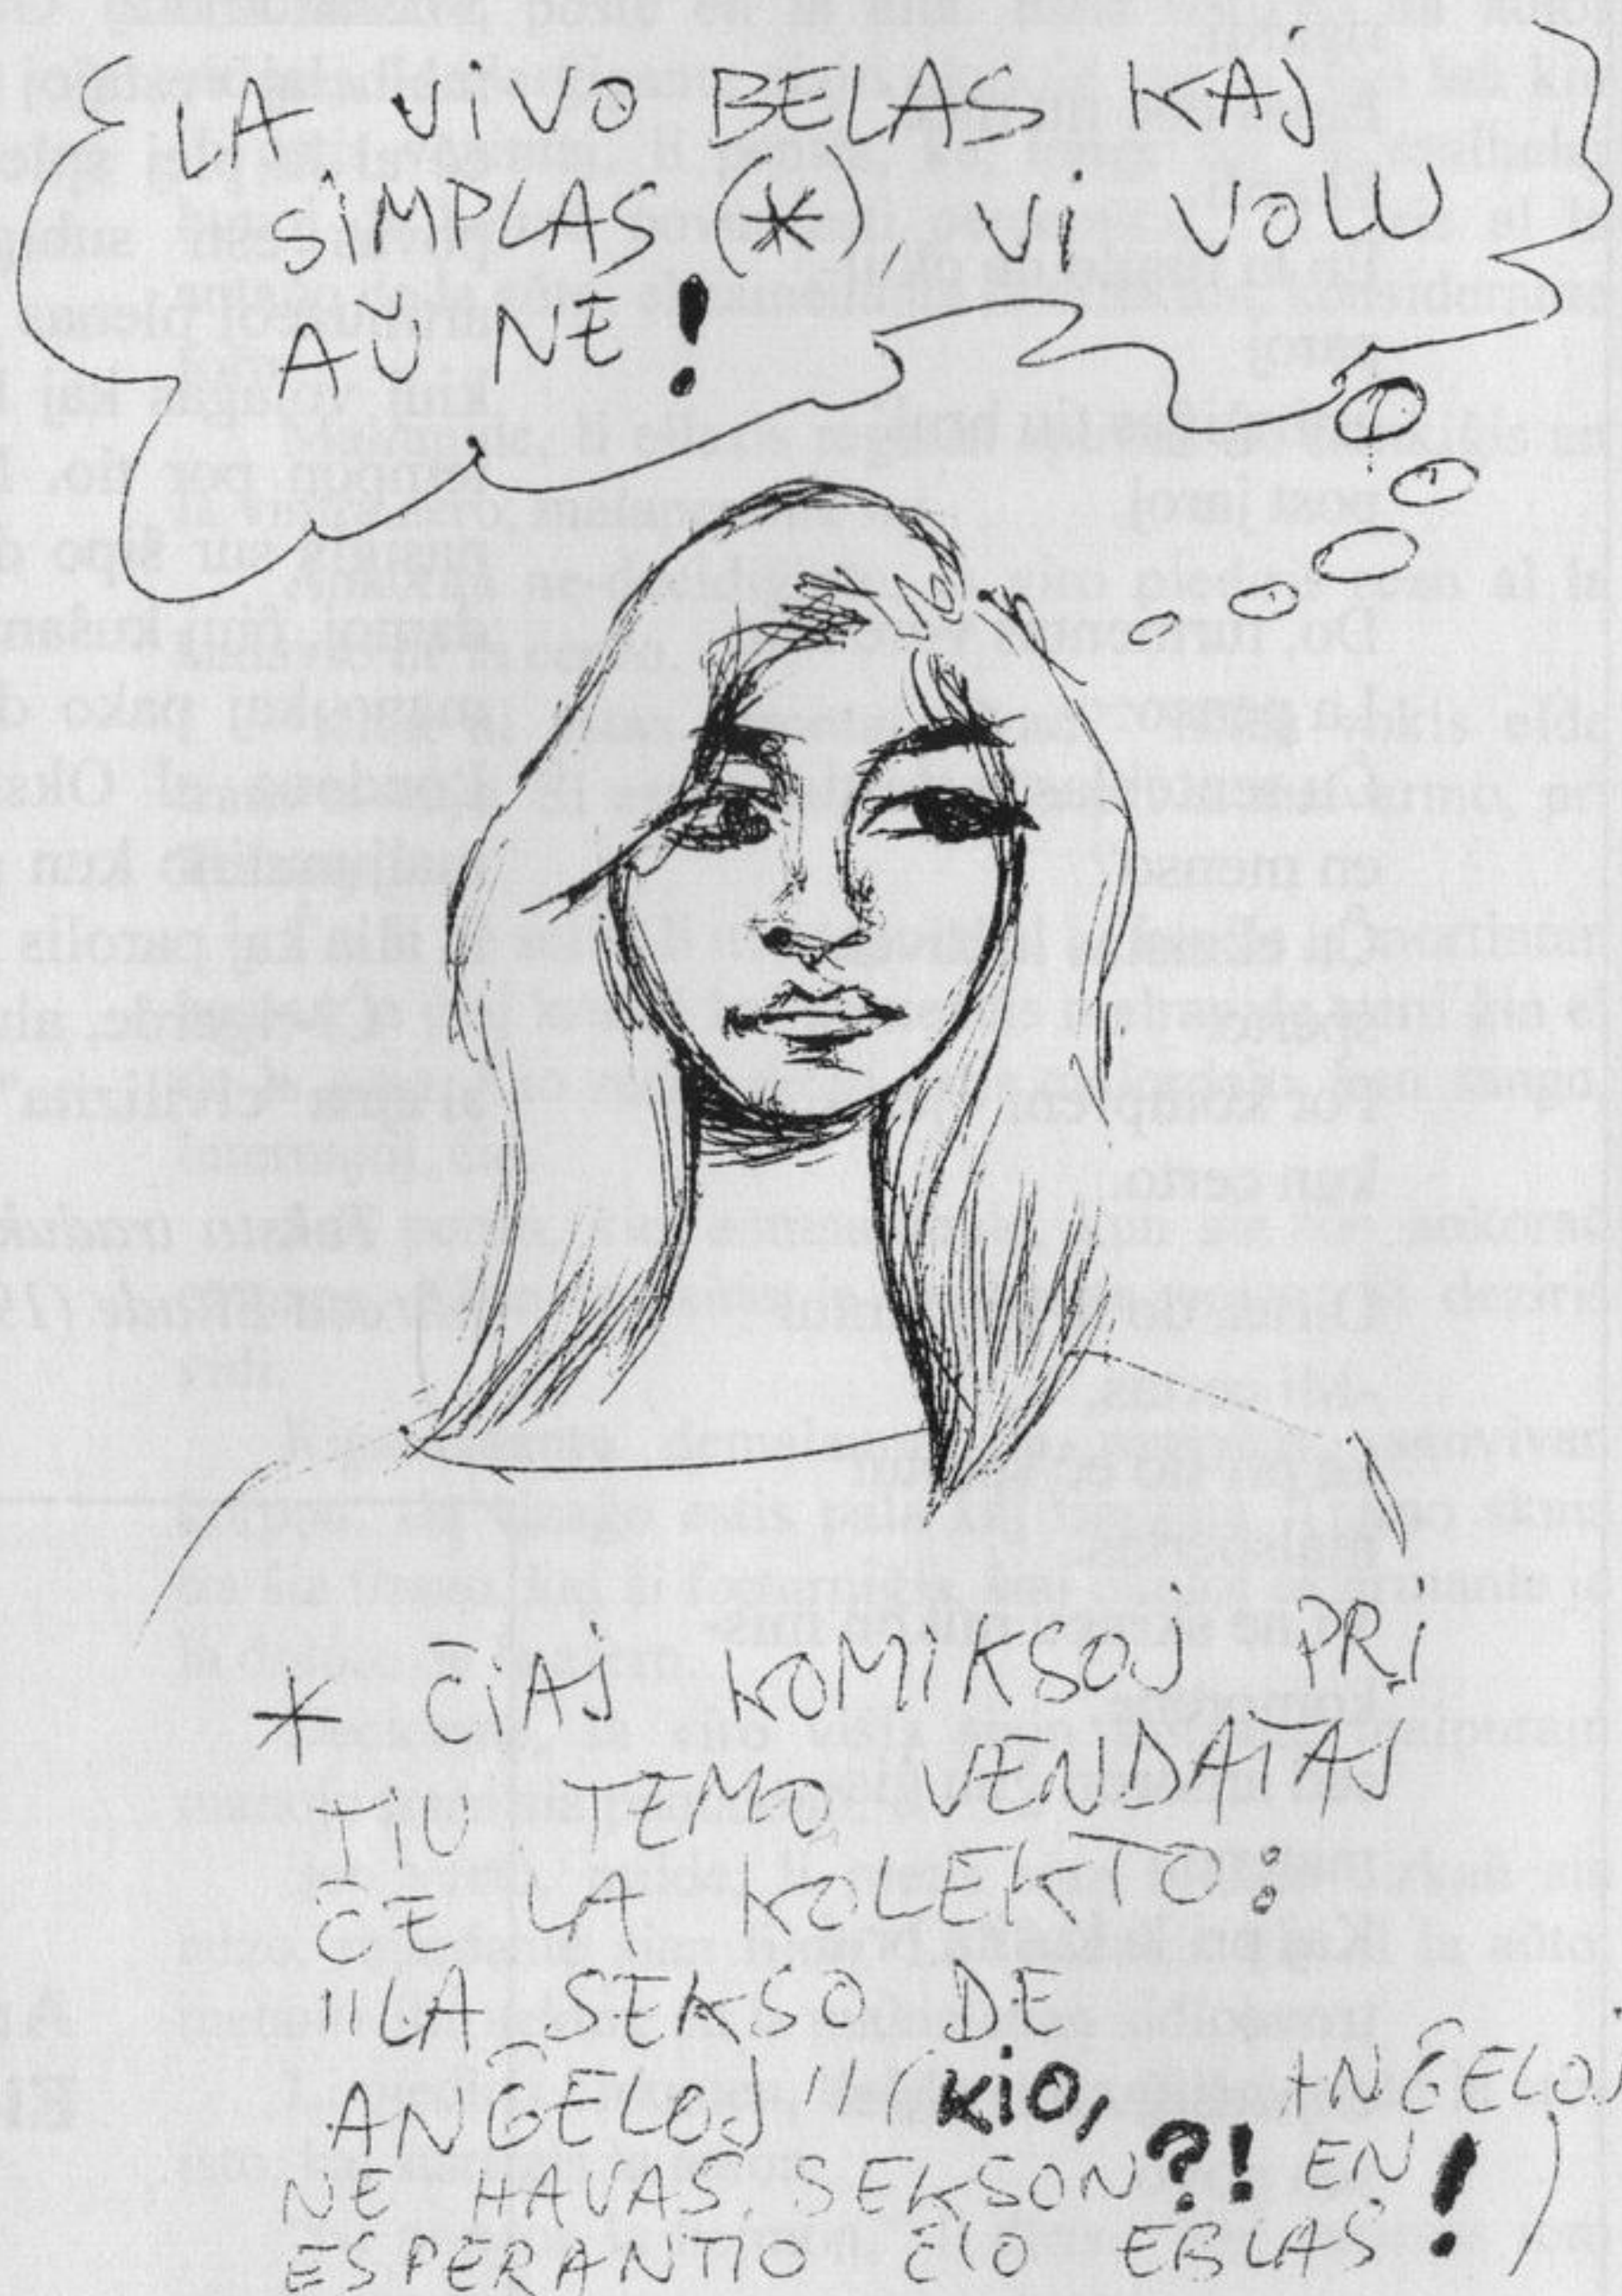 LA VIVO BELAS KAJ
SIMPLAS (*), VI VOLU
AŬ NE!
* ĈIAJ KOMIKSOJ PRI
TIU TEMO VENDATAJ
ĈE LA KOLEKTO:
"LA SEKSO DE
ANĜELOJ" (KIO, ANĜELOJ
NE HAVAS SEKSON?! EN
ESPERANTIO ĈIO EBLAS!)